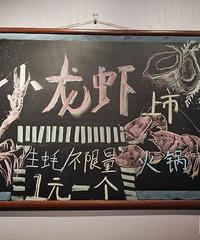 小龙虾
上市
生蚝/不限量 火锅
1元一个